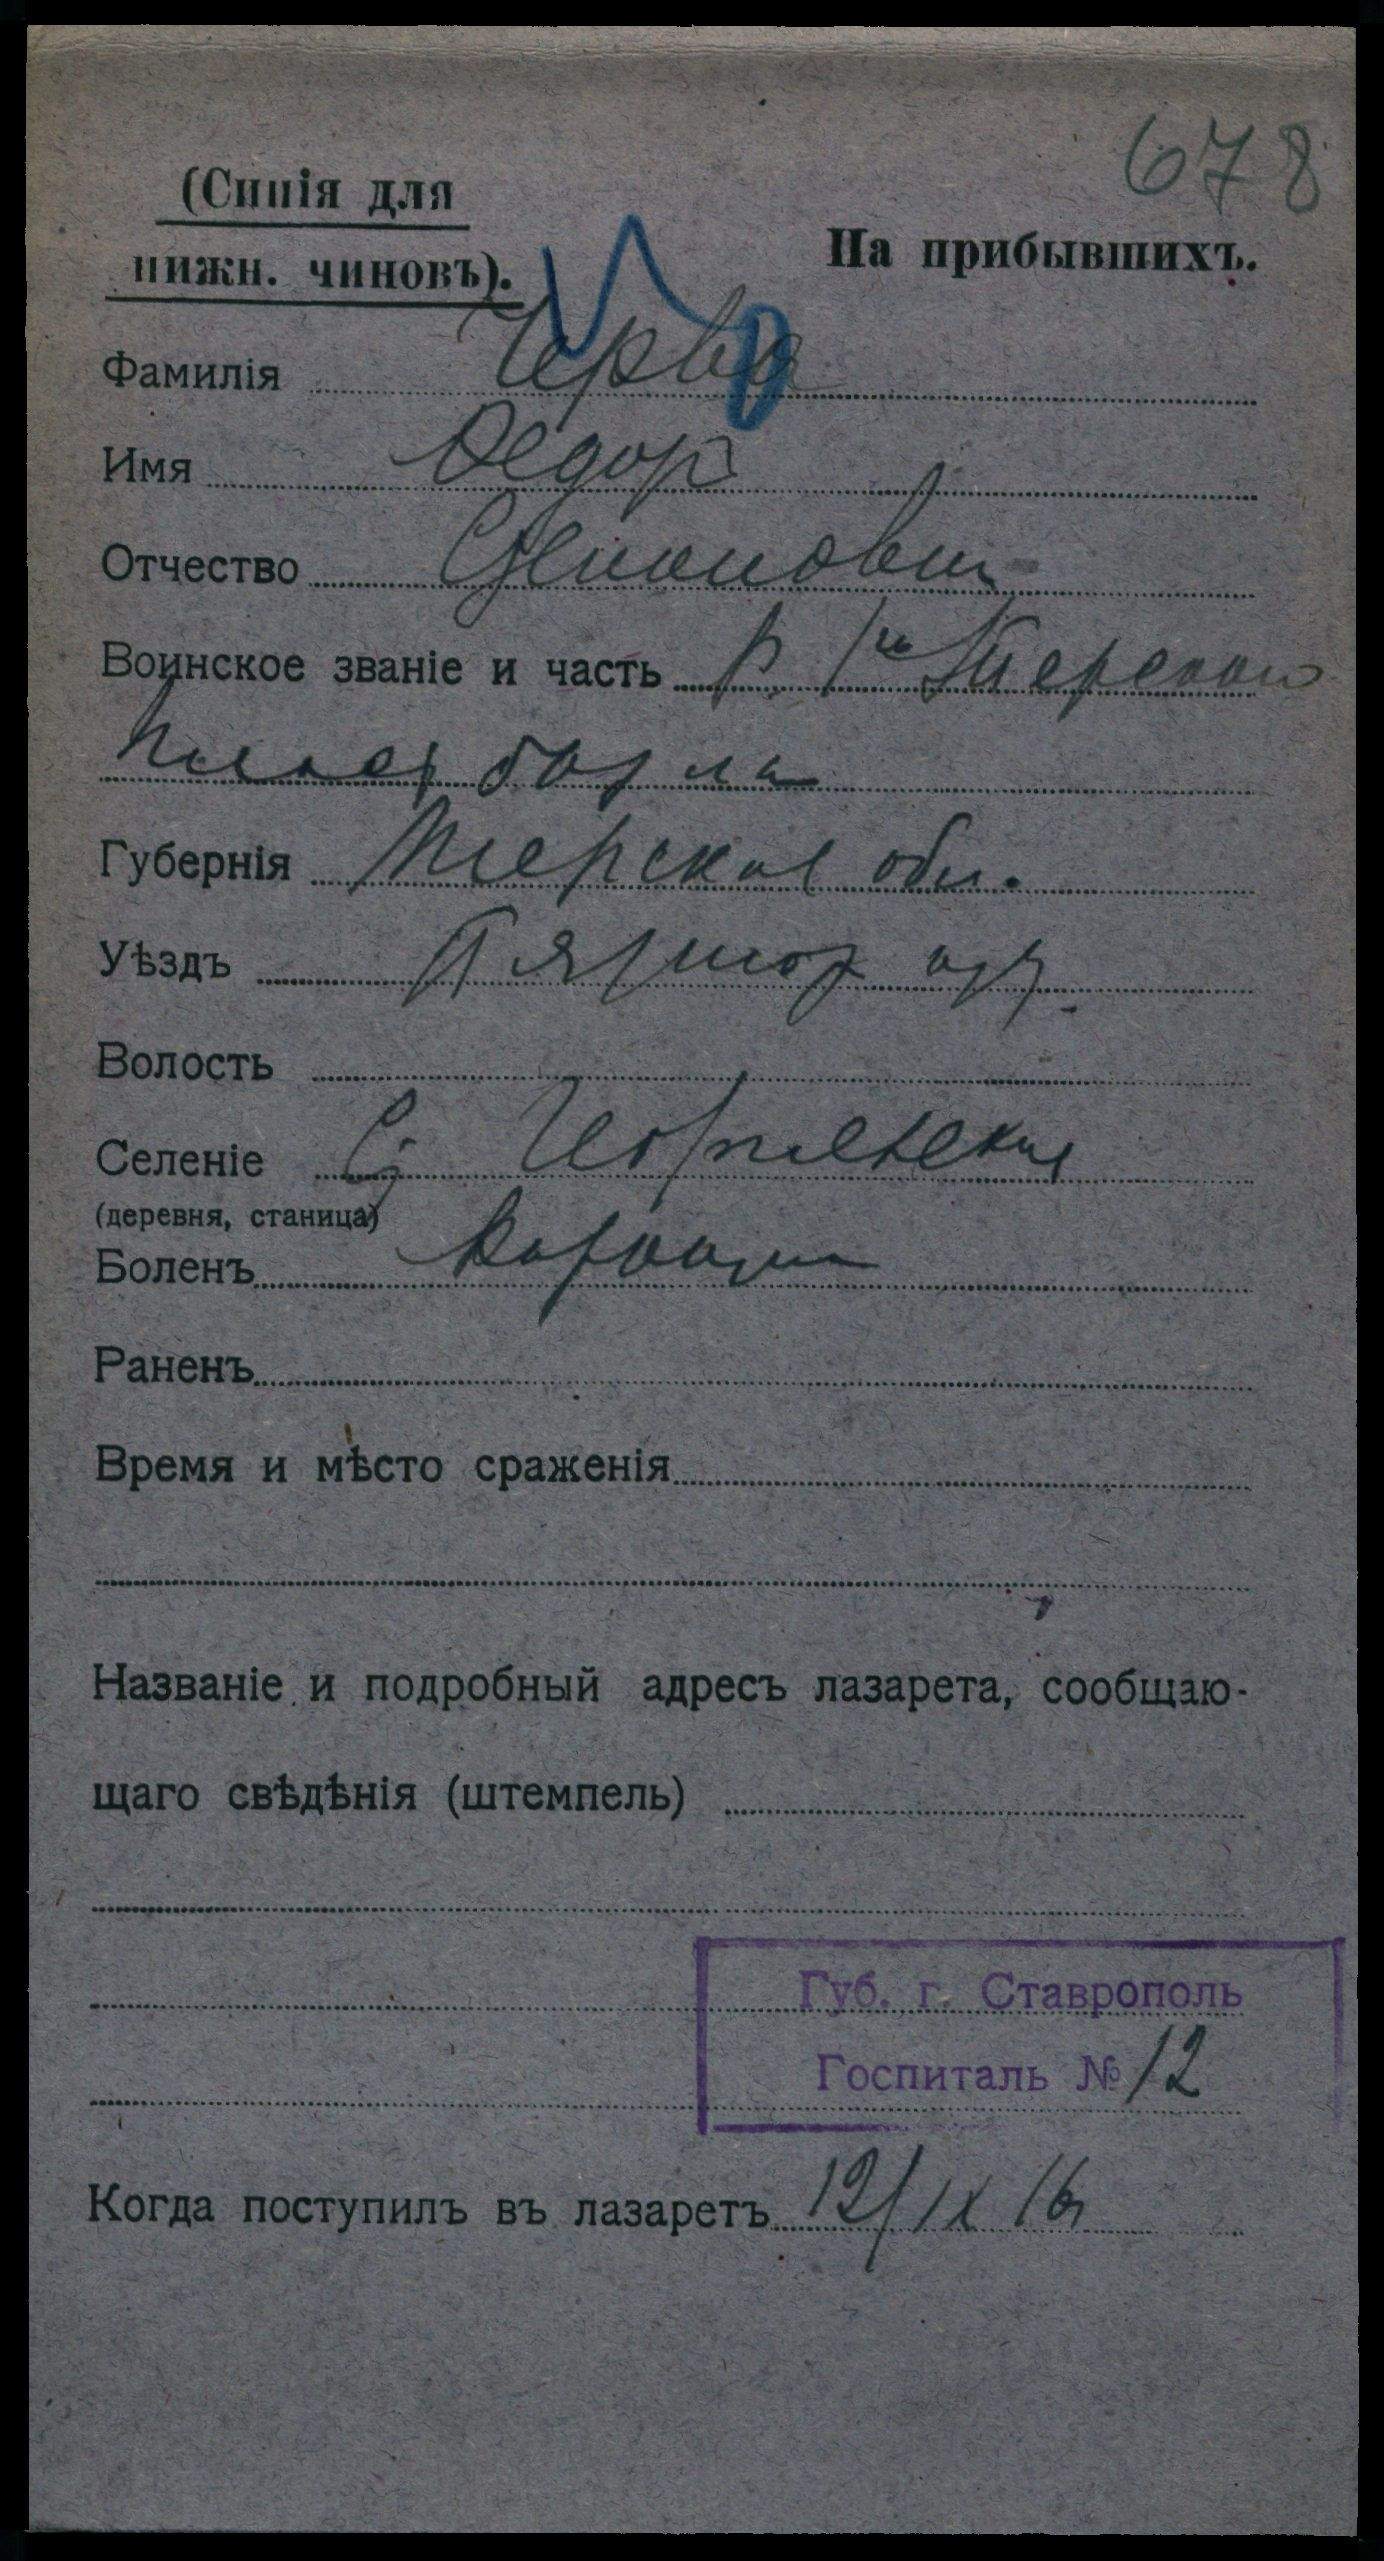 678
(Синія для
нижн. чиновъ).
На прибывшихъ.
Фамилія Черва
Имя Федор
Отчество Степанович
Воинское званіе и часть Р. 1го Терского
Губернія Терская обл.
Уѣздъ Пятигор
Волость
Селеніе С.
(деревня, станица)
Боленъ
Раненъ
Время и мѣсто сраженія
Названіе и подробный адресъ лазарета, сообщаю-
щаго свѣдѣнія (штемпель)
Губ. г. Ставрополь
Госпиталь № 12
Когда поступилъ въ лазаретъ 12/IX 16